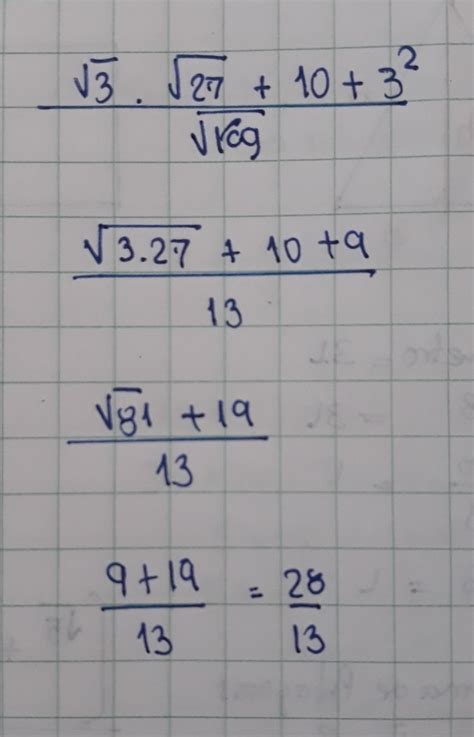 √3 . √27 + 10 + 3²
√169
√3.27 + 10 + 9
13
√81 + 19
13
9 + 19 = 28
13 13